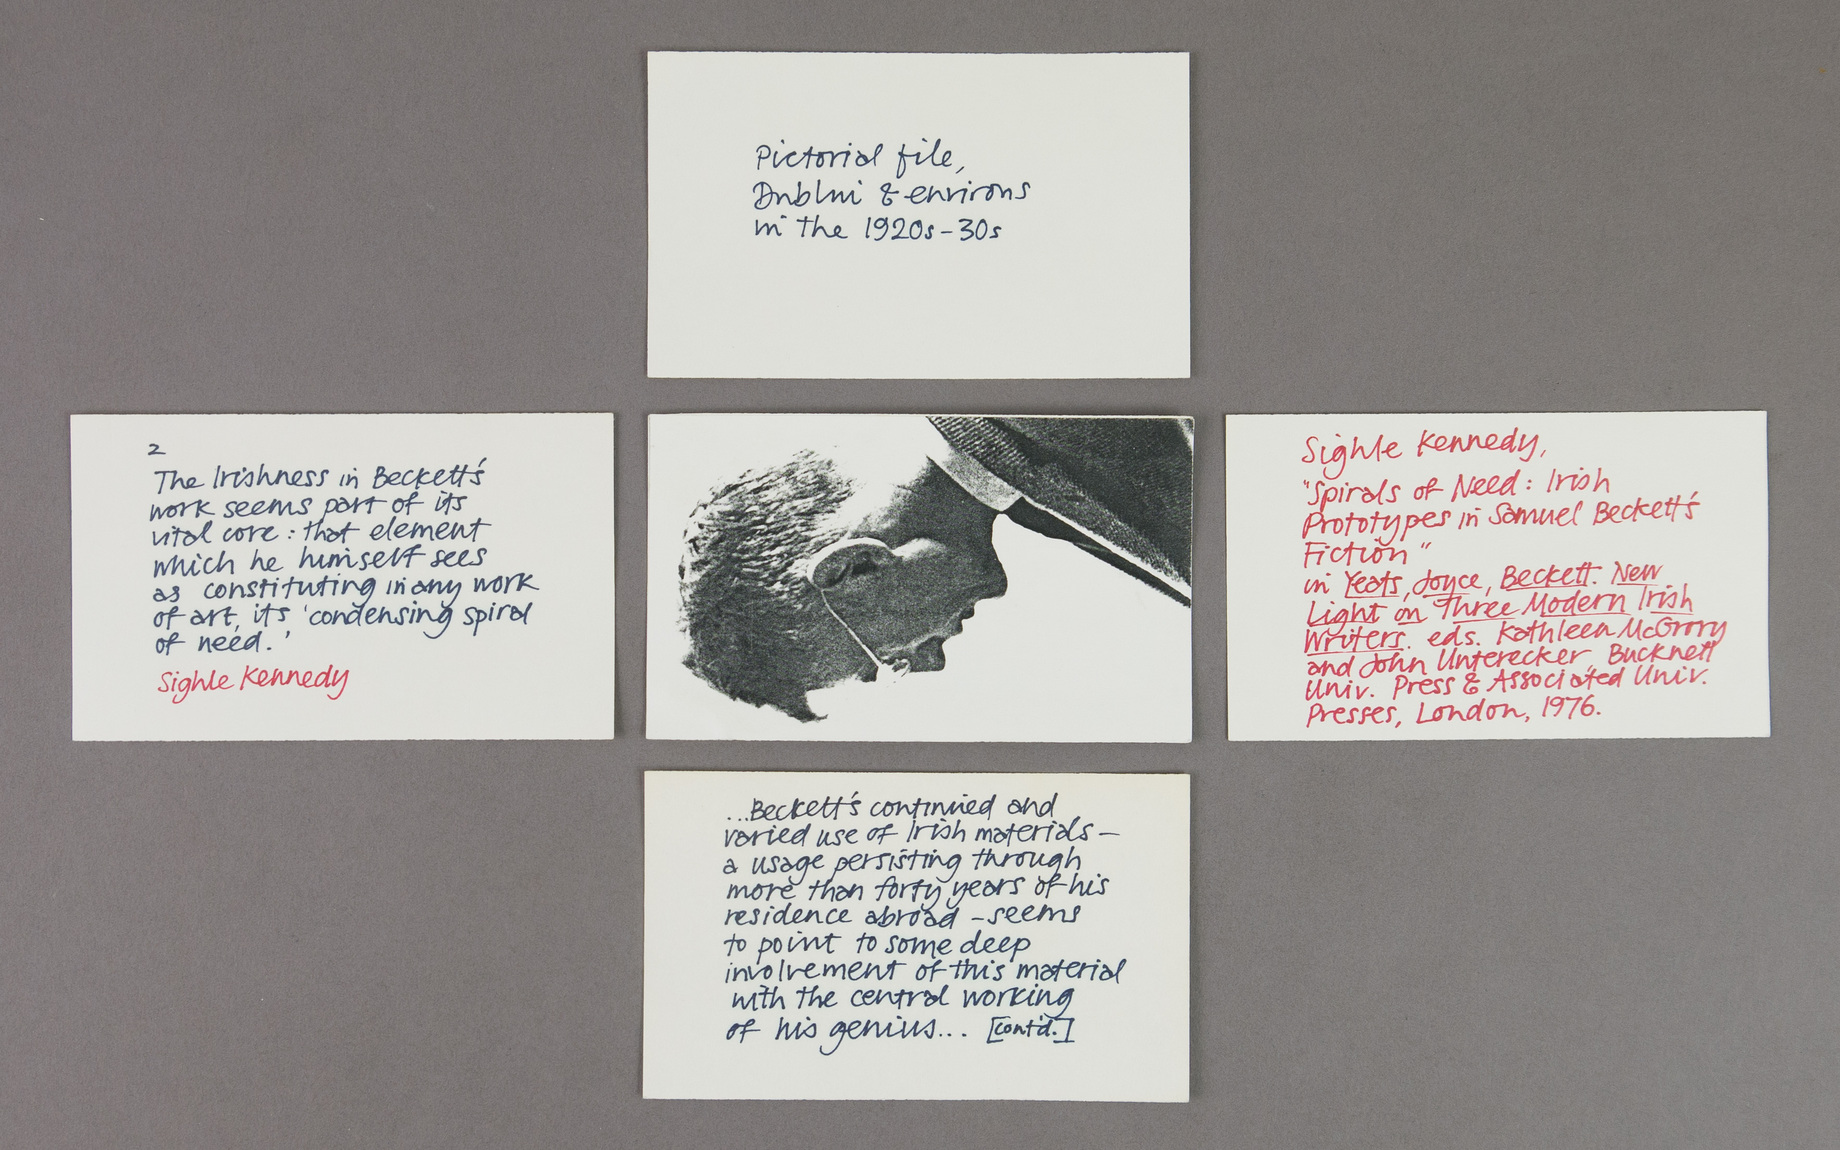 Pictorial file,
Dublin & environs
in the 1920s-30s
2
The Irishness in Beckett's
work seems part of its
vital core: that element
which he himself sees
as constituting in any work
of art, its 'condensing spiral
of need.'
Sighle Kennedy
Sighle Kennedy,
"Spirals of Need: Irish
Prototypes in Samuel Beckett's
Fiction"
in Yeats, Joyce, Beckett. New
Light on Three Modern Irish
Writers. eds. Kathleen McGrory
and John Unterecker, Bucknell
Univ. Press & Associated Univ.
Presses, London, 1976.
...Beckett's continued and
varied use of Irish materials –
a usage persisting through
more than forty years of his
residence abroad – seems
to point to some deep
involvement of this material
with the central working
of his genius... [cont'd.]